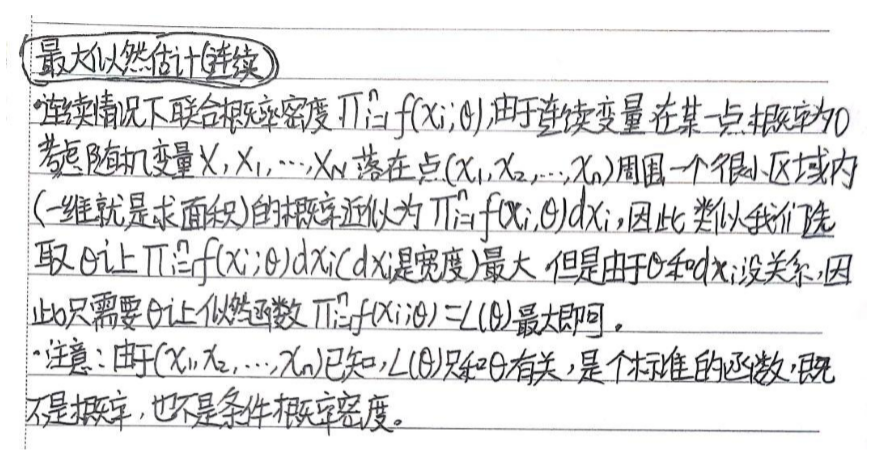 最大似然估计(连续)
·连续情况下联合概率密度 ∏ⁿᵢ₌₁ f(xᵢ;θ),由于连续变量在某一点概率为0
考虑随机变量X, X₁, ⋯, X_N 落在点(x₁,x₂,⋯,xₙ)周围一个很小区域内
(一维就是求面积)的概率近似为 ∏ⁿᵢ₌₁ f(xᵢ,θ)dxᵢ,因此类似我们选
取θ让∏ⁿᵢ₌₁ f(xᵢ;θ)dxᵢ(dxᵢ是宽度)最大 但是由于θ和dxᵢ没关系,因
此只需要θ让似然函数∏ⁿᵢ₌₁ f(xᵢ;θ)=L(θ)最大即可。
·注意:由于(x₁,x₂,⋯,xₙ)已知,L(θ)只和θ有关,是个标准的函数,既
不是概率,也不是条件概率密度。